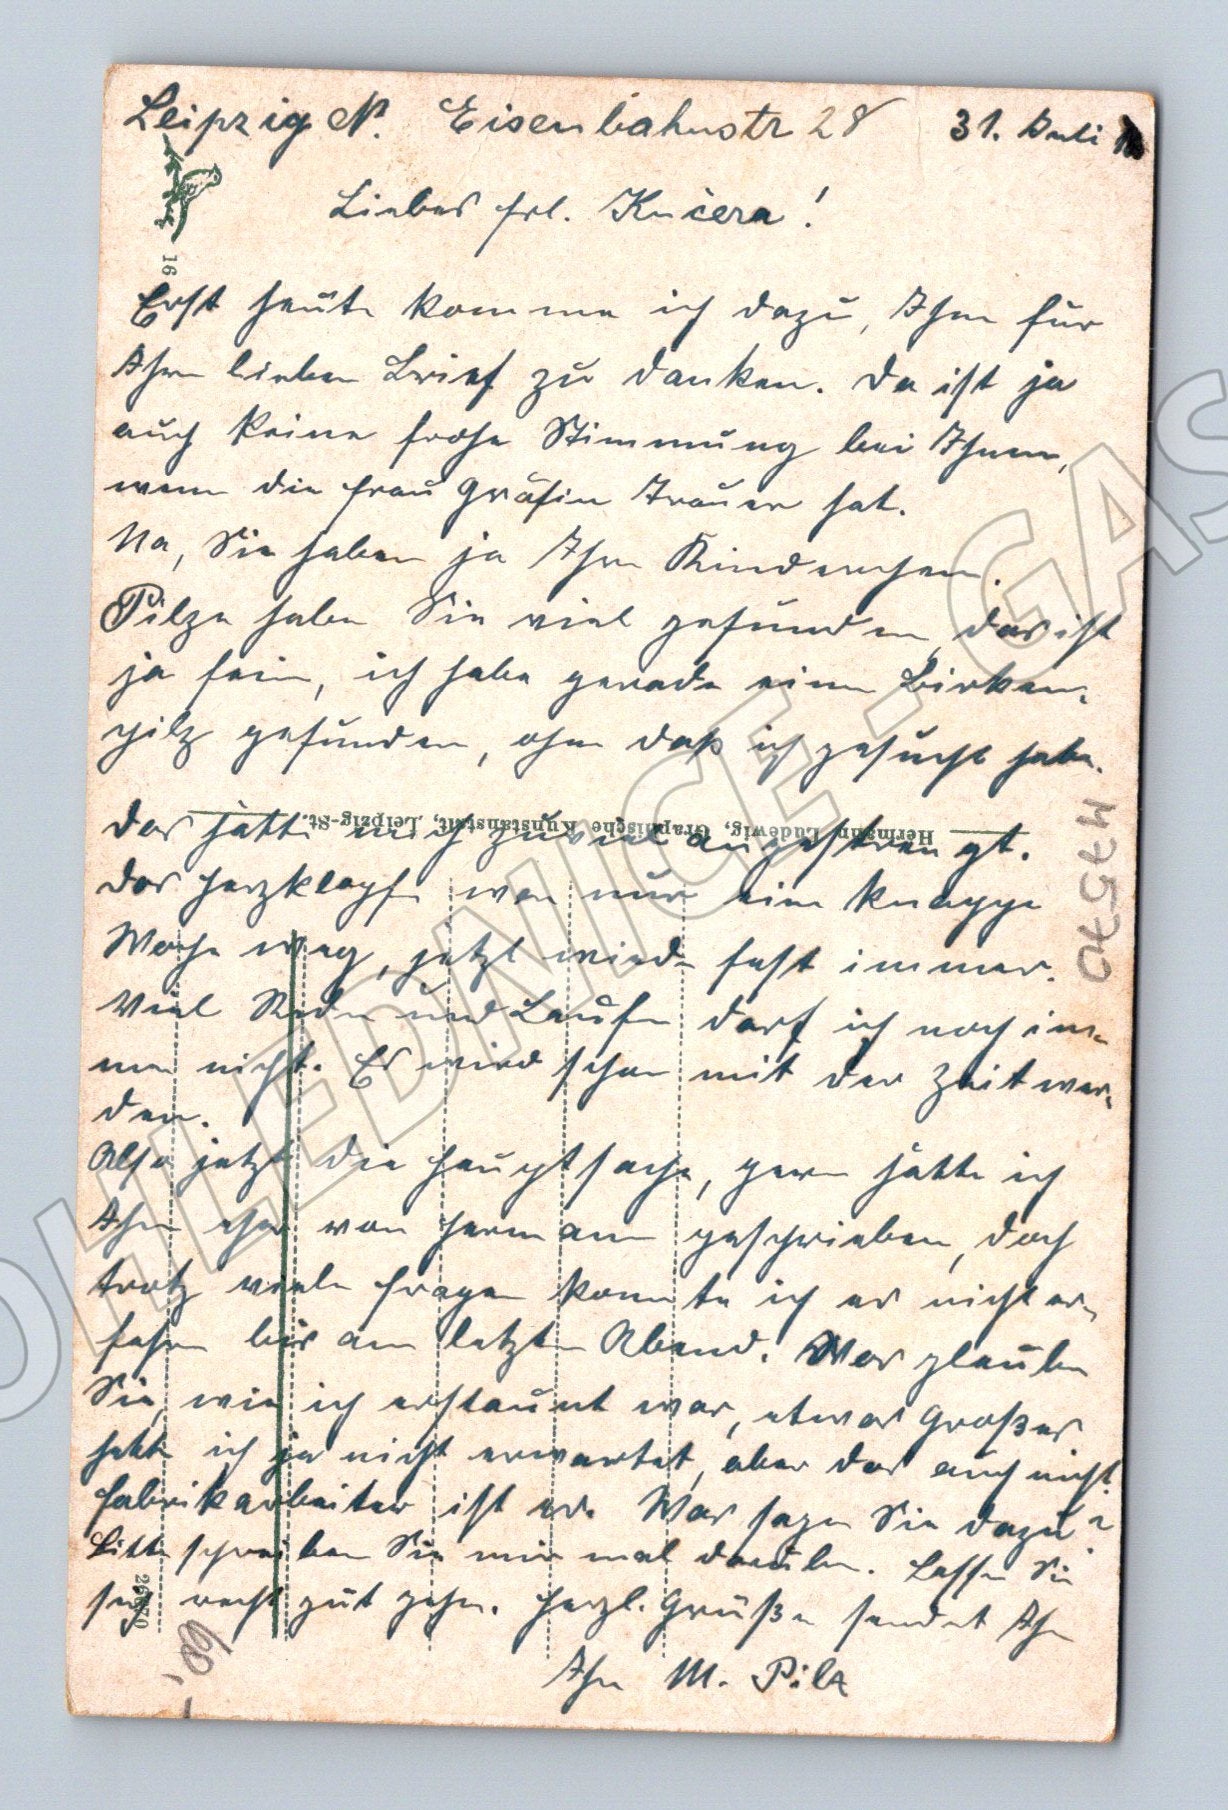 Leipzig N. Eisenbahnstr 28 31. Juli
Liebes Frl. Kučera!
16
Erst heute komme ich dazu, Ihnen für
Ihren lieben Brief zu danken. Da ist ja
auch keine frohe Stimmung bei Ihnen,
wenn die Frau Gräfin Trauer hat.
Na, Sie haben ja Ihre Kinderchen.
Pilze haben Sie viel gefunden, das ist
ja fein, ich habe gerade einen Birken-
pilz gefunden, ohne daß ich gesucht habe.
Das hätte mich zuviel angestrengt.
Hermann Ludwig, Graphische Kunstanstalt, Leipzig-St.
Das Herzklopfen war nur eine knappe
Woche weg, jetzt wieder fast immer.
Viel Reden und Laufen darf ich noch im-
mer nicht. Es wird schon mit der Zeit wer-
den.
Also jetzt die Hauptsache, gern hätte ich
Ihnen eher von Hermann geschrieben, doch
trotz vieler Fragen konnte ich es nicht er-
fahren bis am letzten Abend. Was glauben
Sie, wie ich erstaunt war, etwas Großes
hatte ich ja nicht erwartet, aber das auch nicht.
Fabrikarbeiter ist er. Was sagen Sie dazu?
Bitte schreiben Sie mir mal darüber. Lassen Sie
sich recht gut gehn. Herzl. Grüße sendet Ihnen
Ihre M. Pilz
47570
60,-